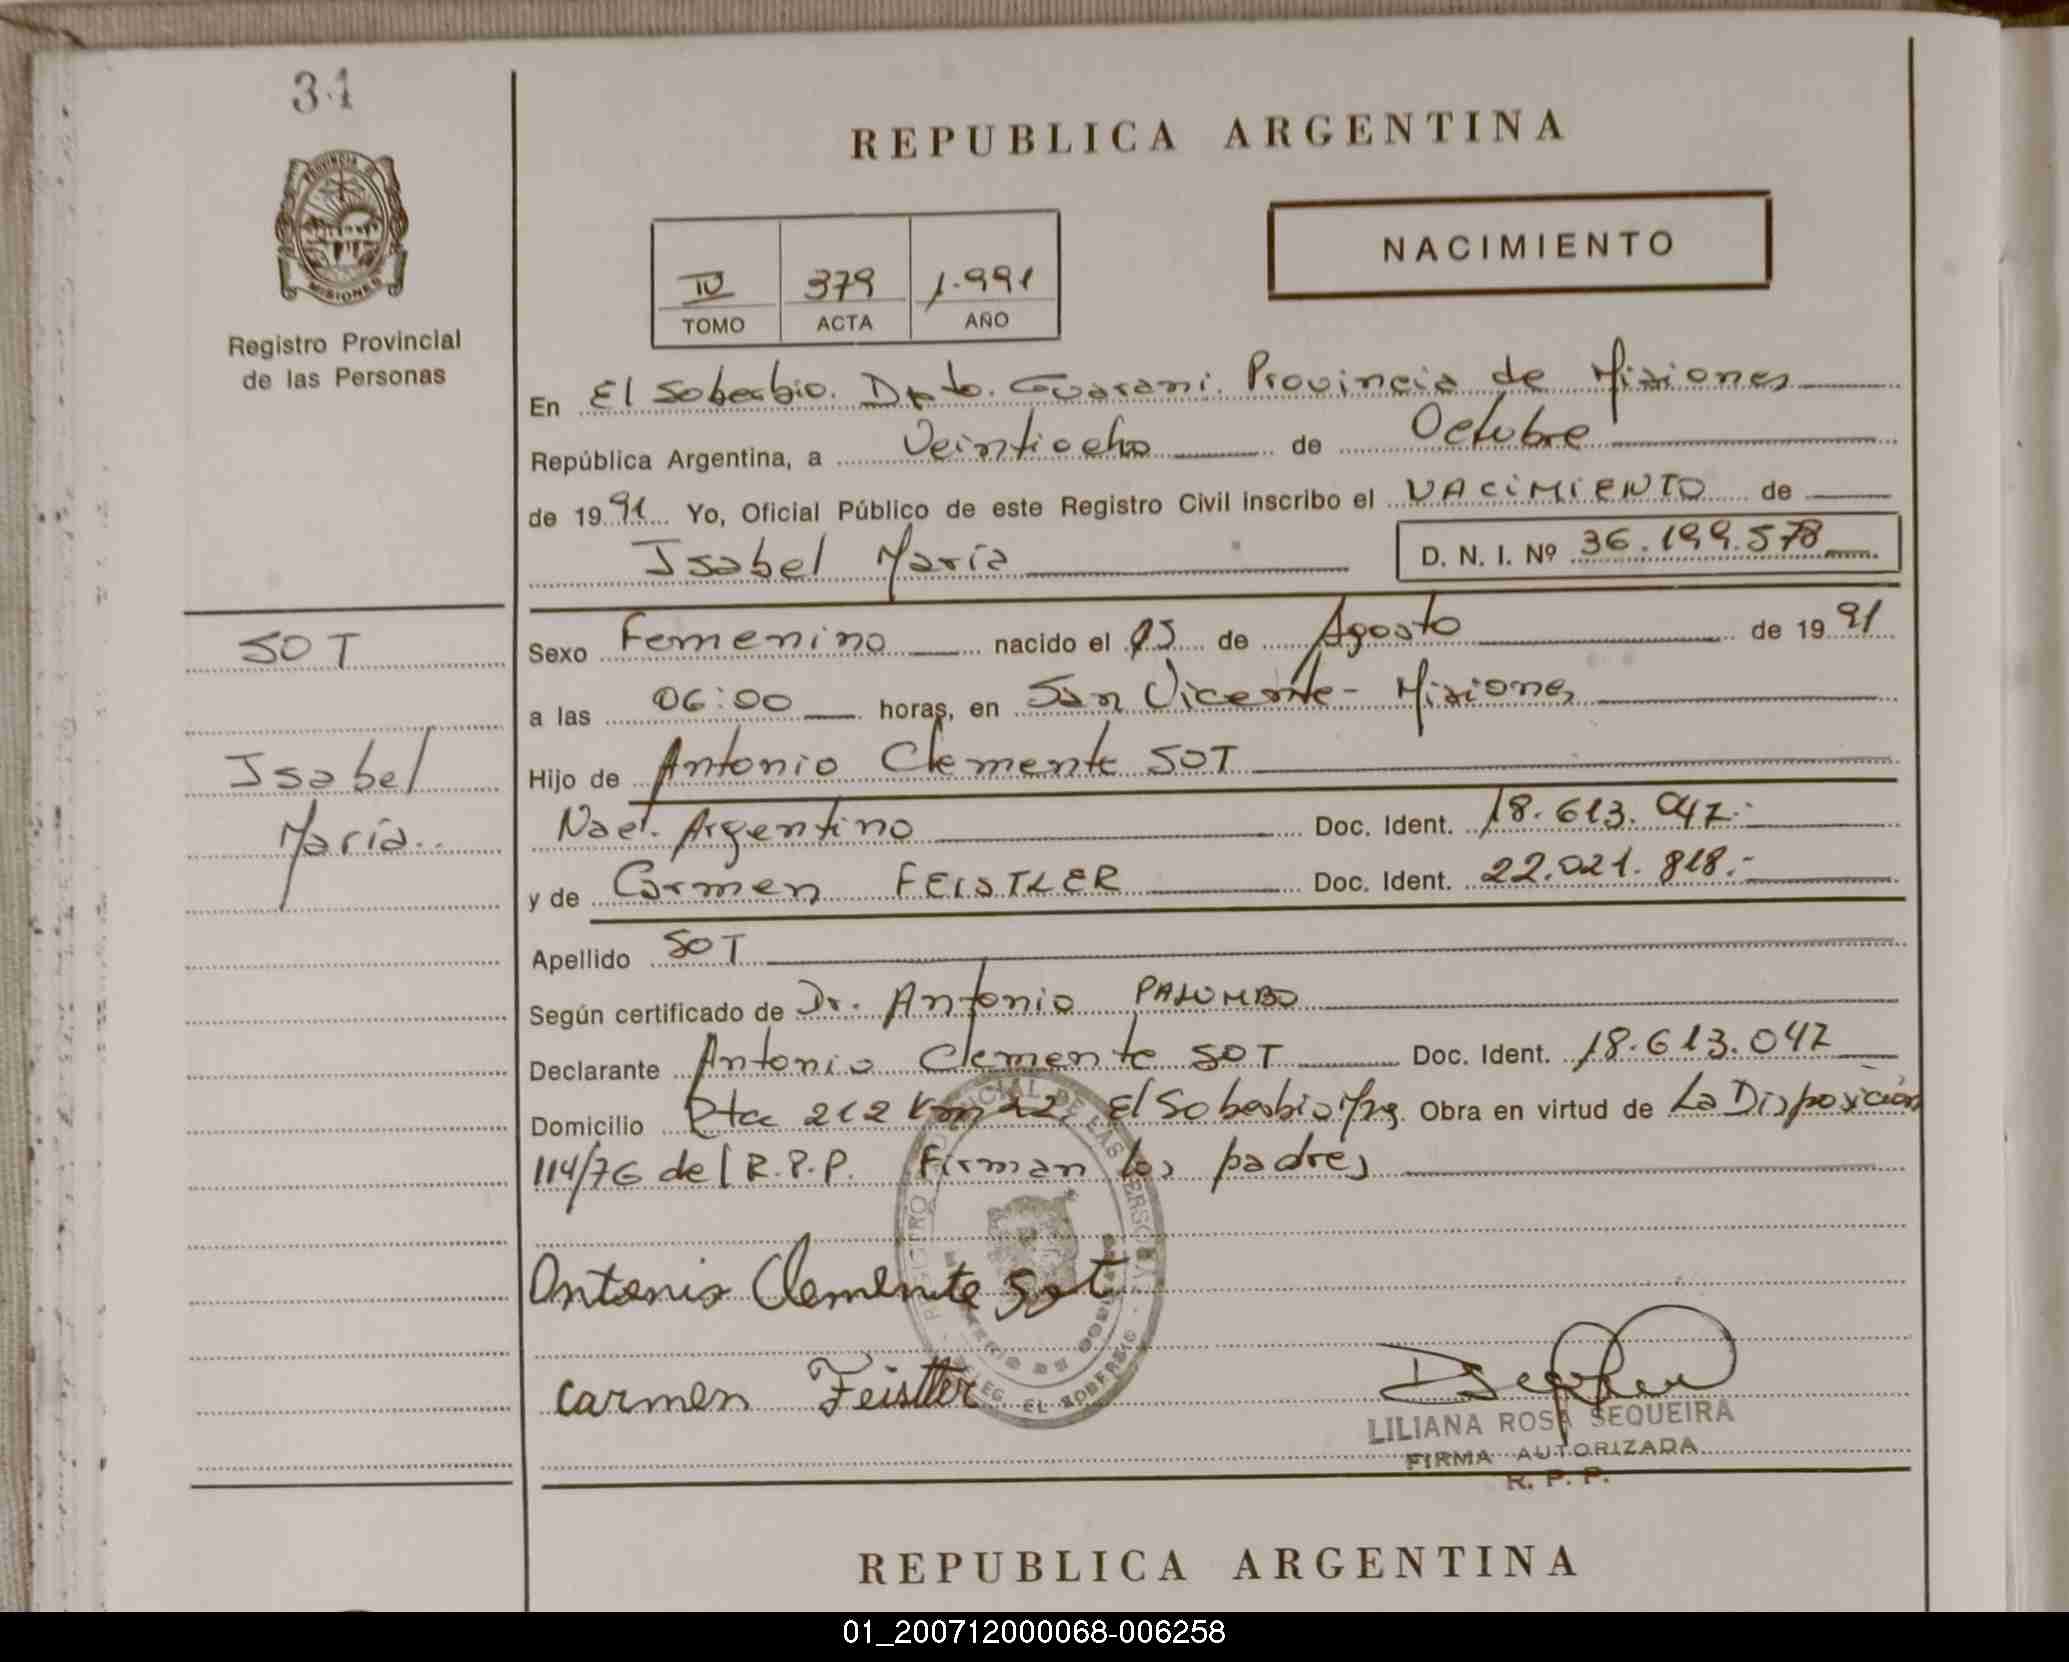 31
PROVINCIA DE
MISIONES
Registro Provincial
de las Personas
REPUBLICA ARGENTINA
NACIMIENTO
IV 379 1.991
TOMO ACTA AÑO
En El Soberbio. Dpto. Guarani. Provincia de Misiones
República Argentina, a Veintiocho de Octubre
de 1991 Yo, Oficial Público de este Registro Civil inscribo el NACIMIENTO de
Isabel María D. N. I. Nº 36.199.578
SOT
Isabel
María
Sexo Femenino nacido el 15 de Agosto de 1991
a las 06:00 horas, en San Vicente - Misiones
Hijo de Antonio Clemente SOT
Nac. Argentino Doc. Ident. 18.613.047.-
y de Carmen FEISTLER Doc. Ident. 22.021.818.-
Apellido SOT
Según certificado de Dr. Antonio PALUMBO
Declarante Antonio Clemente SOT Doc. Ident. 18.613.047
Domicilio Rta 212 Km 22 El Soberbio Obra en virtud de La Disposición
114/76 del R.P.P. Firman los padres
Antonio Clemente Sot
Carmen Feistler
REGISTRO PROVINCIAL DE LAS PERSONAS
DELEG. EL SOBERBIO
LILIANA ROSA SEQUEIRA
FIRMA AUTORIZADA
R. P. P.
REPUBLICA ARGENTINA
01_200712000068-006258